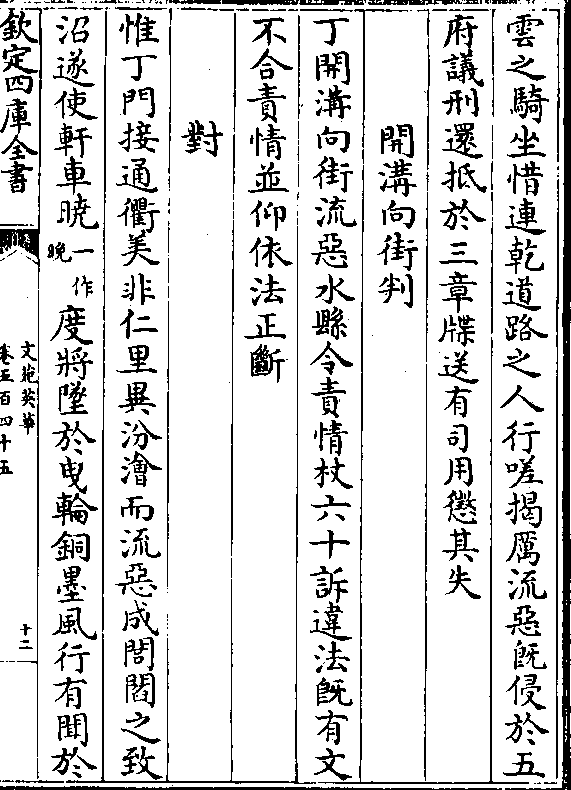 雲之騎坐惜連乾道路之人行嗟揭厲流惡旣侵於五
府議刑還抵於三章牒送有司用懲其失
開溝向街判
丁開溝向街流惡水縣令責情杖六十訴違法旣有文
不合責情並仰依法正斷
對
惟丁門接通衢美非仁里異汾澮而流惡成閭閻之致
沼遂使軒車曉一作晚度將墜於曳輪銅墨風行有聞於
欽定四庫全書
文苑英華
卷五百四十五
十二